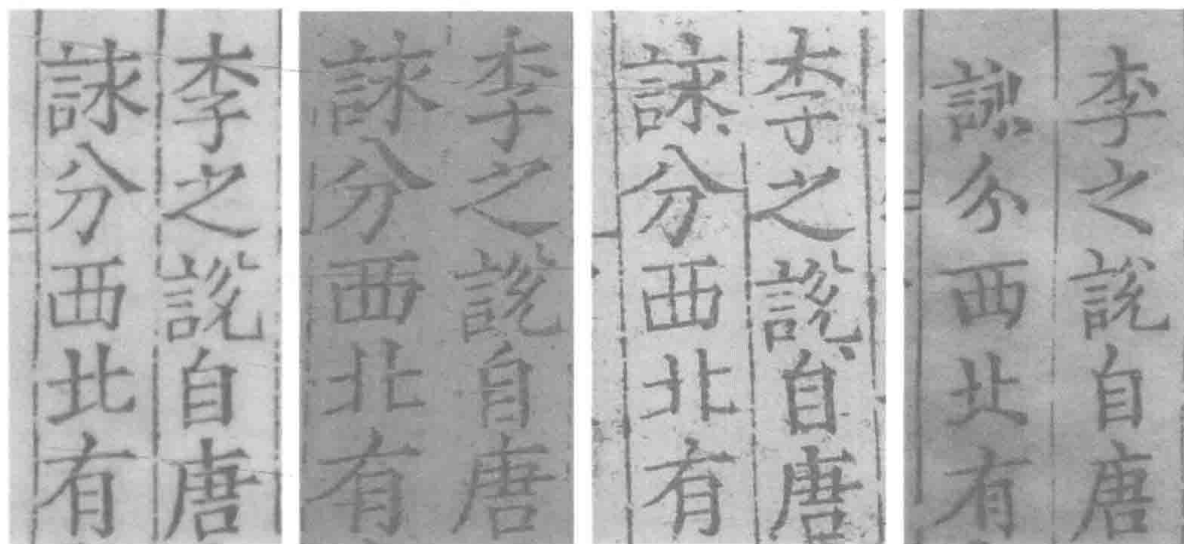 李之說自唐
分西北有
李之說自唐
分西北有
李之說自唐
分西北有
李之說自唐
分西北有